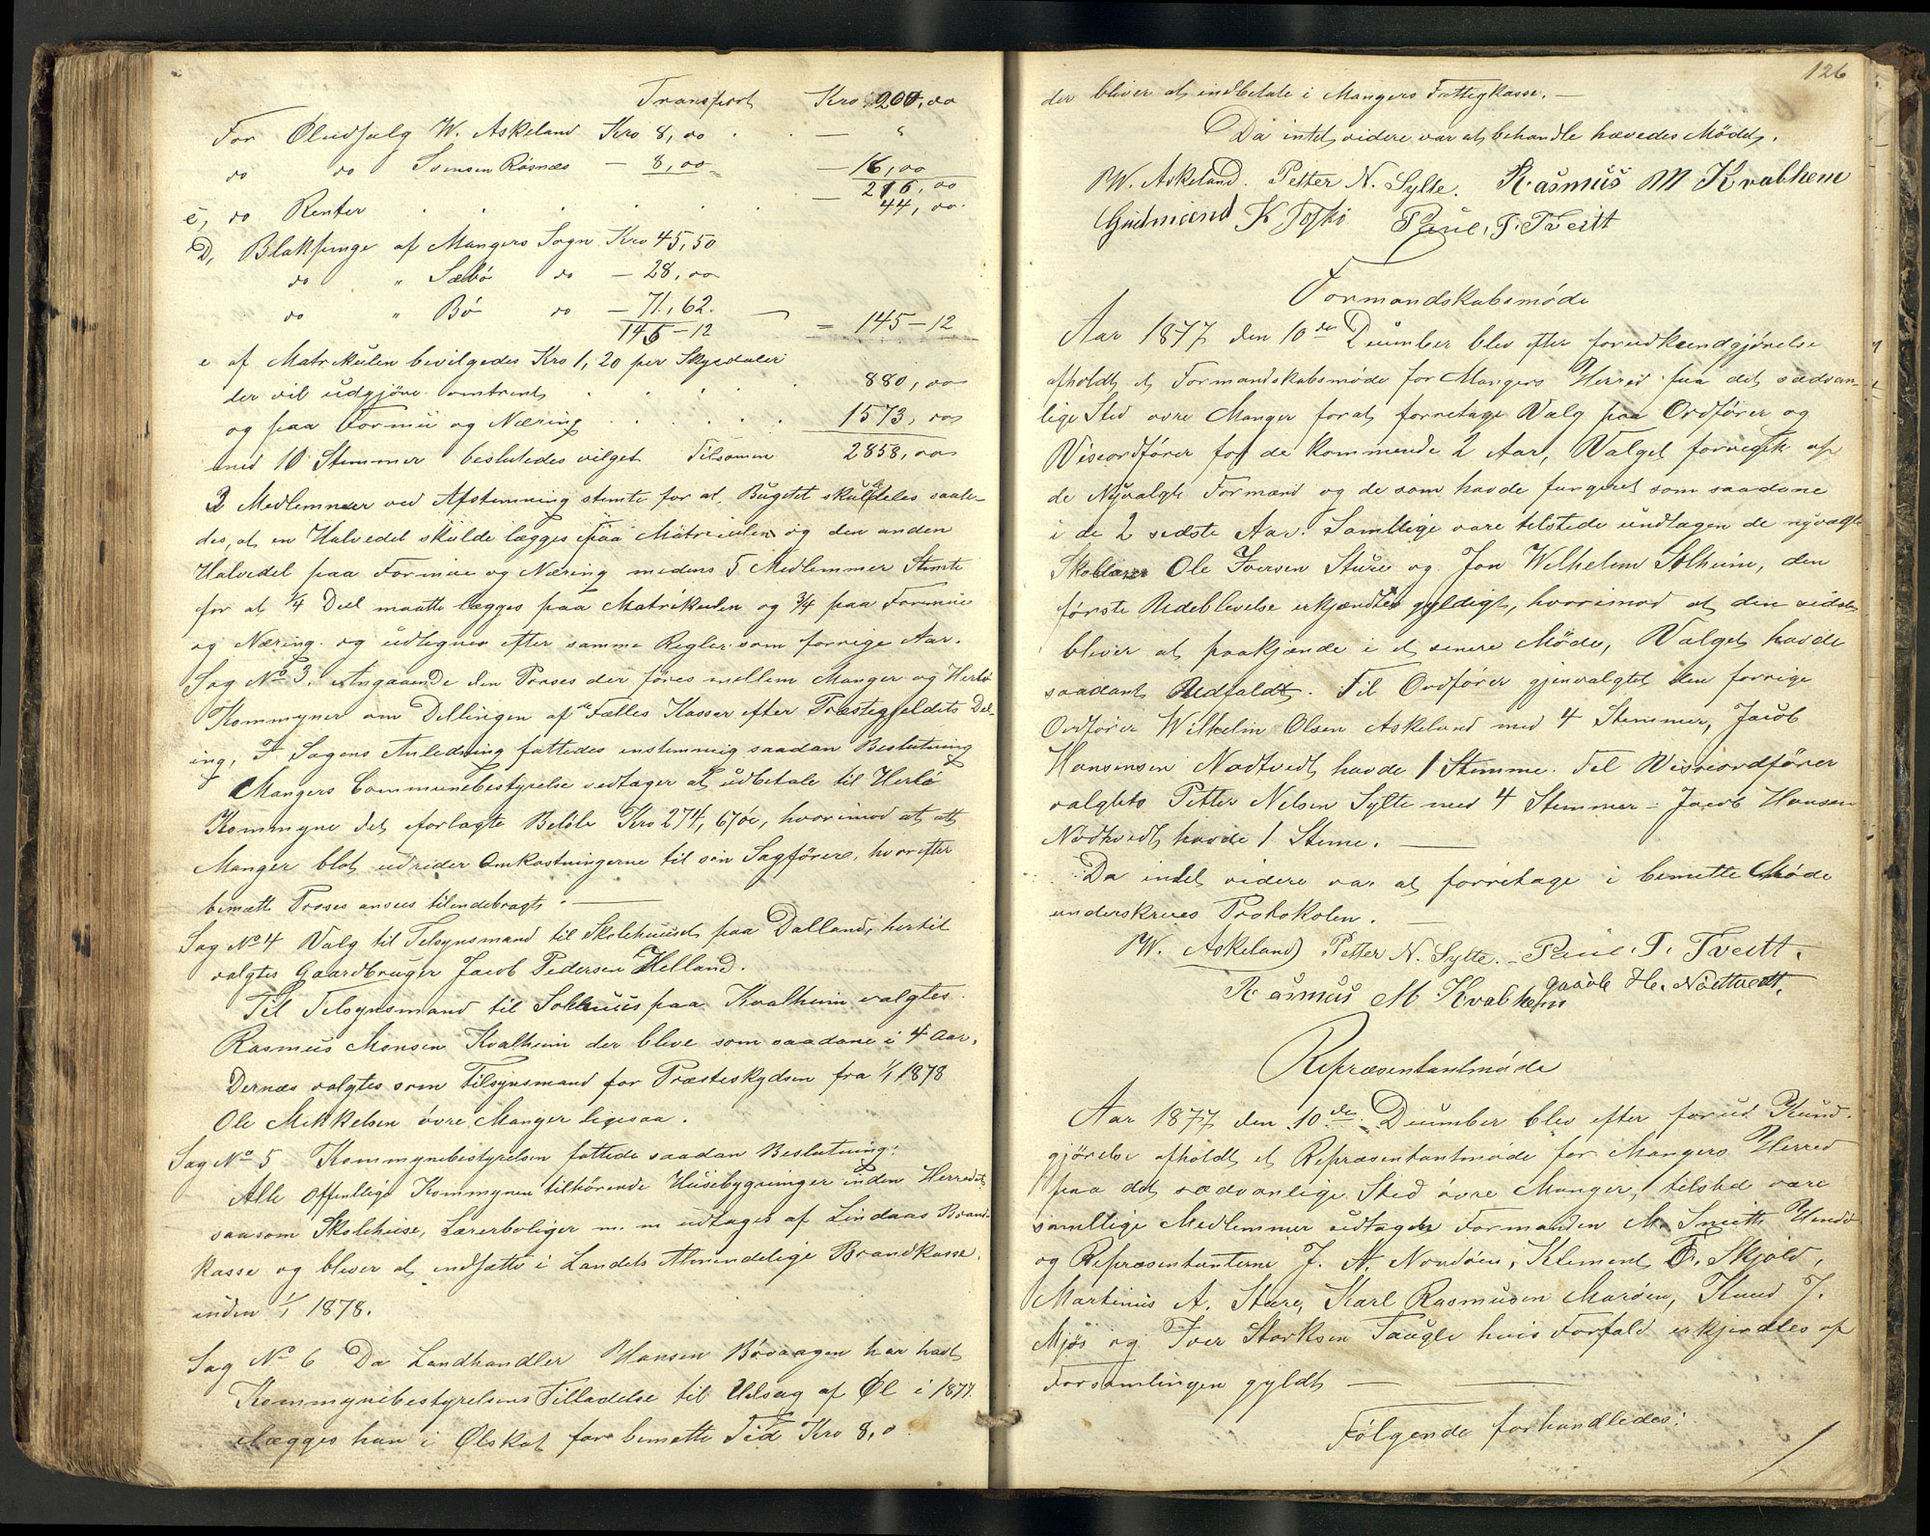 Transport Kro 200,00
For Øludsalg W. Askeland Kro 8,00 . . — "
do do Svensen Rosnæs — 8,00 — 16,00
216,00
c, do Renter . . . . . . — 44,00
D, Blakpenge af Mangers Sogn Kro 45,50
do " Sæbø do — 28,00
do " Bø do — 71,62.
145–12 — = 145–12
e af Matrikulen bevilgedes Kro 1,20 per Skyldaler
der vil udgjöre omtrent . . . . 880,00
og paa Formue og Næring . . . . . 1573,00
med 10 Stemmer besluttedes vilget Tilsamen 2858,00
3 Medlemmer ved Afstemning stemte for at Bugetet skulde deles saale-
des, at en Halvedel skulde lægges paa Matriculen og den anden
Halvdel paa Formue og Næring medens 5 Medlemmer Stemte
for at ¼ Deel maatte lægges paa Matrikulen og ¾ paa Formue
og Næring og udlignes efter samme Regler som forrige Aar.
Sag No 3. Angaaende den Proses der föres mellem Manger og Herlø
Kommyner om Dellingen af Fælles Kasser efter Præstegjeldets Del-
ing. I Sagens Anledning fattedes enstemmig saadan Beslutning
Mangers Communebestyrelse vedtager at udbetale til Herlø
Kommyne det forlagte Beløb Kro 274, 67 öre, hvorimod at
Manger blot udreder Omkostningerne til sin Sagförer, hvorefter
bemætte Proses ansees tilendebragt. —
Sag No 4 Valg til Tilsynsmand til Skolehuuset paa Dalland, hertil
valgtes Gaardbruger Jacob Pedersen Helland.
Til Tilsynsmand til Solehuus paa Kvalheim valgtes
Rasmus Monsen Kvalheim der blive som saadane i 4 Aar.
Dernæs valgtes som Tilsynsmand for Præsteskydsen fra 1/1 1878
Ole Mikkelsen övre Manger ligesaa.
Sag No 5 Kommynebestyrelsen fattede saadan Beslutning:
Alle offentlige Kommynen tilhörende Husebygninger inden Herredet
saasom Skolehuse, Lærerboliger m. m udtages af Lindaas Brand-
kasse og bliver at indsætte i Landets Almindelige Brandkasse
inden 1/1 1878.
Sag No 6 Da Landhandler Hansen Bövaagen har havt
Kommynebestyrelsens Tilladelse til Udsag af Øl i 1877.
ilægges han i Ølskat for bemætte Tid Kro 8,0
126
der bliver at indbetale i Mangers Fattigkasse. —
Da intet videre var at behandle hævedes Mödet.
W. Askeland. Petter N. Sylte. Rasmus M Kvalhem
Gudmund K Toskö Paul. T. Tveitt
Formandskabsmöde
Aar 1877 den 10de December blev efter forudkundgjörelse
afholdt et Formandskabsmöde for Mangers Herred paa det sædvan-
lige Sted övre Manger forat forretage Valg paa Ordförer og
Viseordförer for de kommende 2 Aar, Valget forregik af
de Nyvalgte Formænd og de som havde fungeret som saadane
i de 2 sidste Aar. Samtlige vare tilstede undtagen de nyvagte
Skolelærer Ole Iversen Sture og Jon Wilhelm Solheim, den
förste Udeblevelse erkjendtes gyldigt, hvorimod at den sidste
bliver at paakjende i et senere Möde, Valget havde
saadant Udfaldt. Til Ordförer gjenvalgtes den forrige
Ordförer Wilhelm Olsen Askeland med 4 Stemmer, Jacob
Hansensen Nodtvedt havde 1 Stemme. Til Viseordförer
valgtes Petter Nelsen Sylte med 4 Stemmer – Jacob Hansen
Nodtvedt havde 1 Steme. —
Da intet videre var at forretage i bemætte Möde
underskreves Protokolen. —
W. Askeland) Petter N. Sylte. Paul. T. Tveitt.
Rasmus M Kvalhem Jacob H. Nödtvedt,
Repræsentantmöde
Aar 1877 den 10de December blev efter forud Kund-
gjörelse afholdt et Repræsentantmöde for Mangers Herred
paa det sædvanlige Sted övre Manger, tilsted vare
samtlige Medlemmer undtagen Formanden M. Smith
og Repræsentanterne J. A. Nordöen, Klement T. Skjold,
Martinus A. Stære, Karl Rasmusen Maröen, Knud J.
Mjøs og Iver Storksen Taugle hvis Forfald erkjendtes af
Forsamlingen gyldt —
Følgende forhandledes: